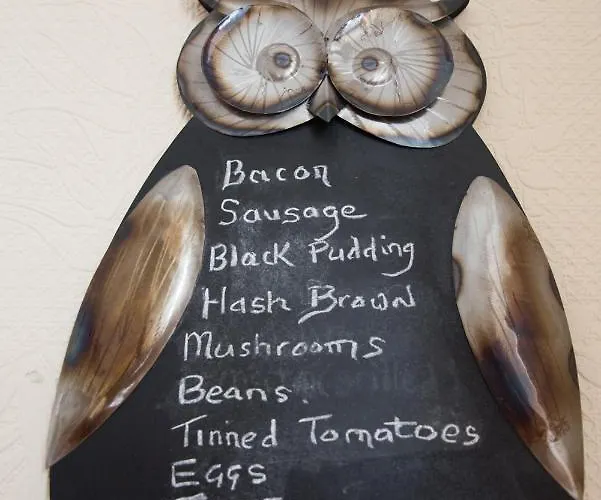 Bacon
Sausage
Black Pudding
Hash Brown
Mushrooms
Beans.
Tinned Tomatoes
Eggs